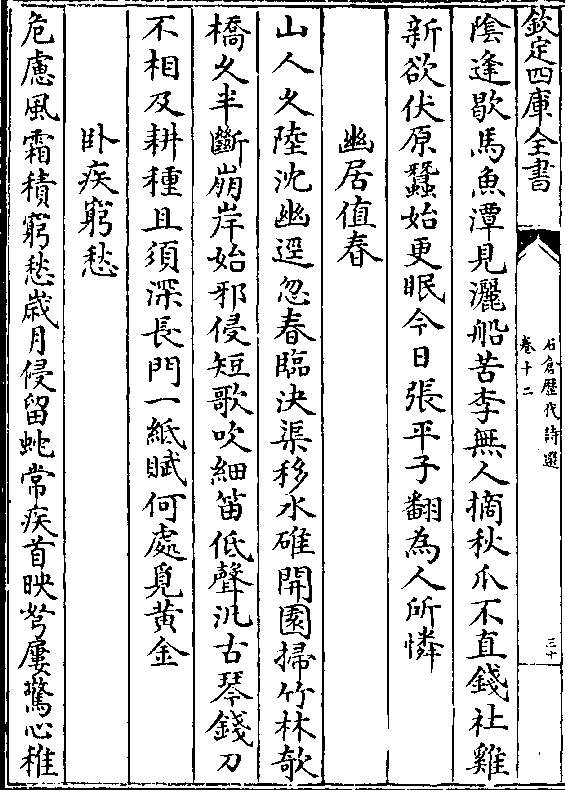 欽定四庫全書
石倉歷代詩選
卷十二
三十
陰逢歇馬魚潭見灑船苦李無人摘秋爪不直錢社雞
新欲伏原蠶始更眠今日張平子翻為人所憐
幽居值春
山人久陸沈幽逕忽春臨決渠移水碓開園掃竹林欹
橋久半斷崩岸始邪侵短歌吹細笛低聲汎古琴錢刀
不相及耕種且須深長門一紙賦何處覓黃金
卧疾窮愁
危慮風霜積窮愁歲月侵留虵常疾首映弩屢驚心稚